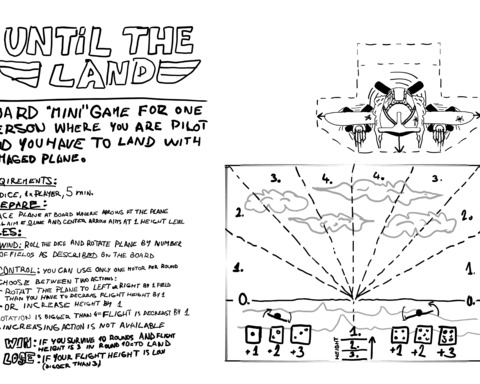 UNTiL THE
LAND
OARD "MiNi" GAME FOR ONE
ERSON WHERE YOU ARE PiLOT
D YOU HAVE TO LAND WITH
MAGED PLANE.
QUiREMENTS:
DiCE, PLAYER, 5 MiN.
EPARE:
ACE PLANE AT BOARD WHERE ARROWS OF THE PLANE
AIM AT 0 LiNE AND CENTER ARROW AiMS AT 1 HEiGHT LEVEL
LES:
WiND: ROLL THE DiCE AND ROTATE PLANE BY NUMBER
OF FiELDS AS DESCRiBED ON THE BOARD
CONTROL: YOU CAN USE ONLY ONE MOTOR PER ROUND
CHOOSE BETWEEN TWO ACTiONS:
- ROTAT THE PLANE TO LEFT OR RiGHT BY 1 FiELD
THAN YOU HAVE TO DECREAS FLiGHT HEiGHT BY 1
- OR iNCREASE HEiGHT BY 1
OTATiON iS BiGGER THAN FLiGHT iS DECREAST BY 1
iNCREASiNG ACTiON iS NOT AVAiLABLE
WiN: iF YOU SURViVE 10 ROUNDS AND FLiGHT
HEiGHT iS 3 iN ROUND 10 TO LAND
LOSE: iF YOUR FLiGHT HEiGHT iS LOW
(BiGGER THAN 3)
3. 4. 4. 3.
2. 2.
1. 1.
0. 0.
HEiGHT
1.
2.
3.
+1 +2 +3 +1 +2 +3